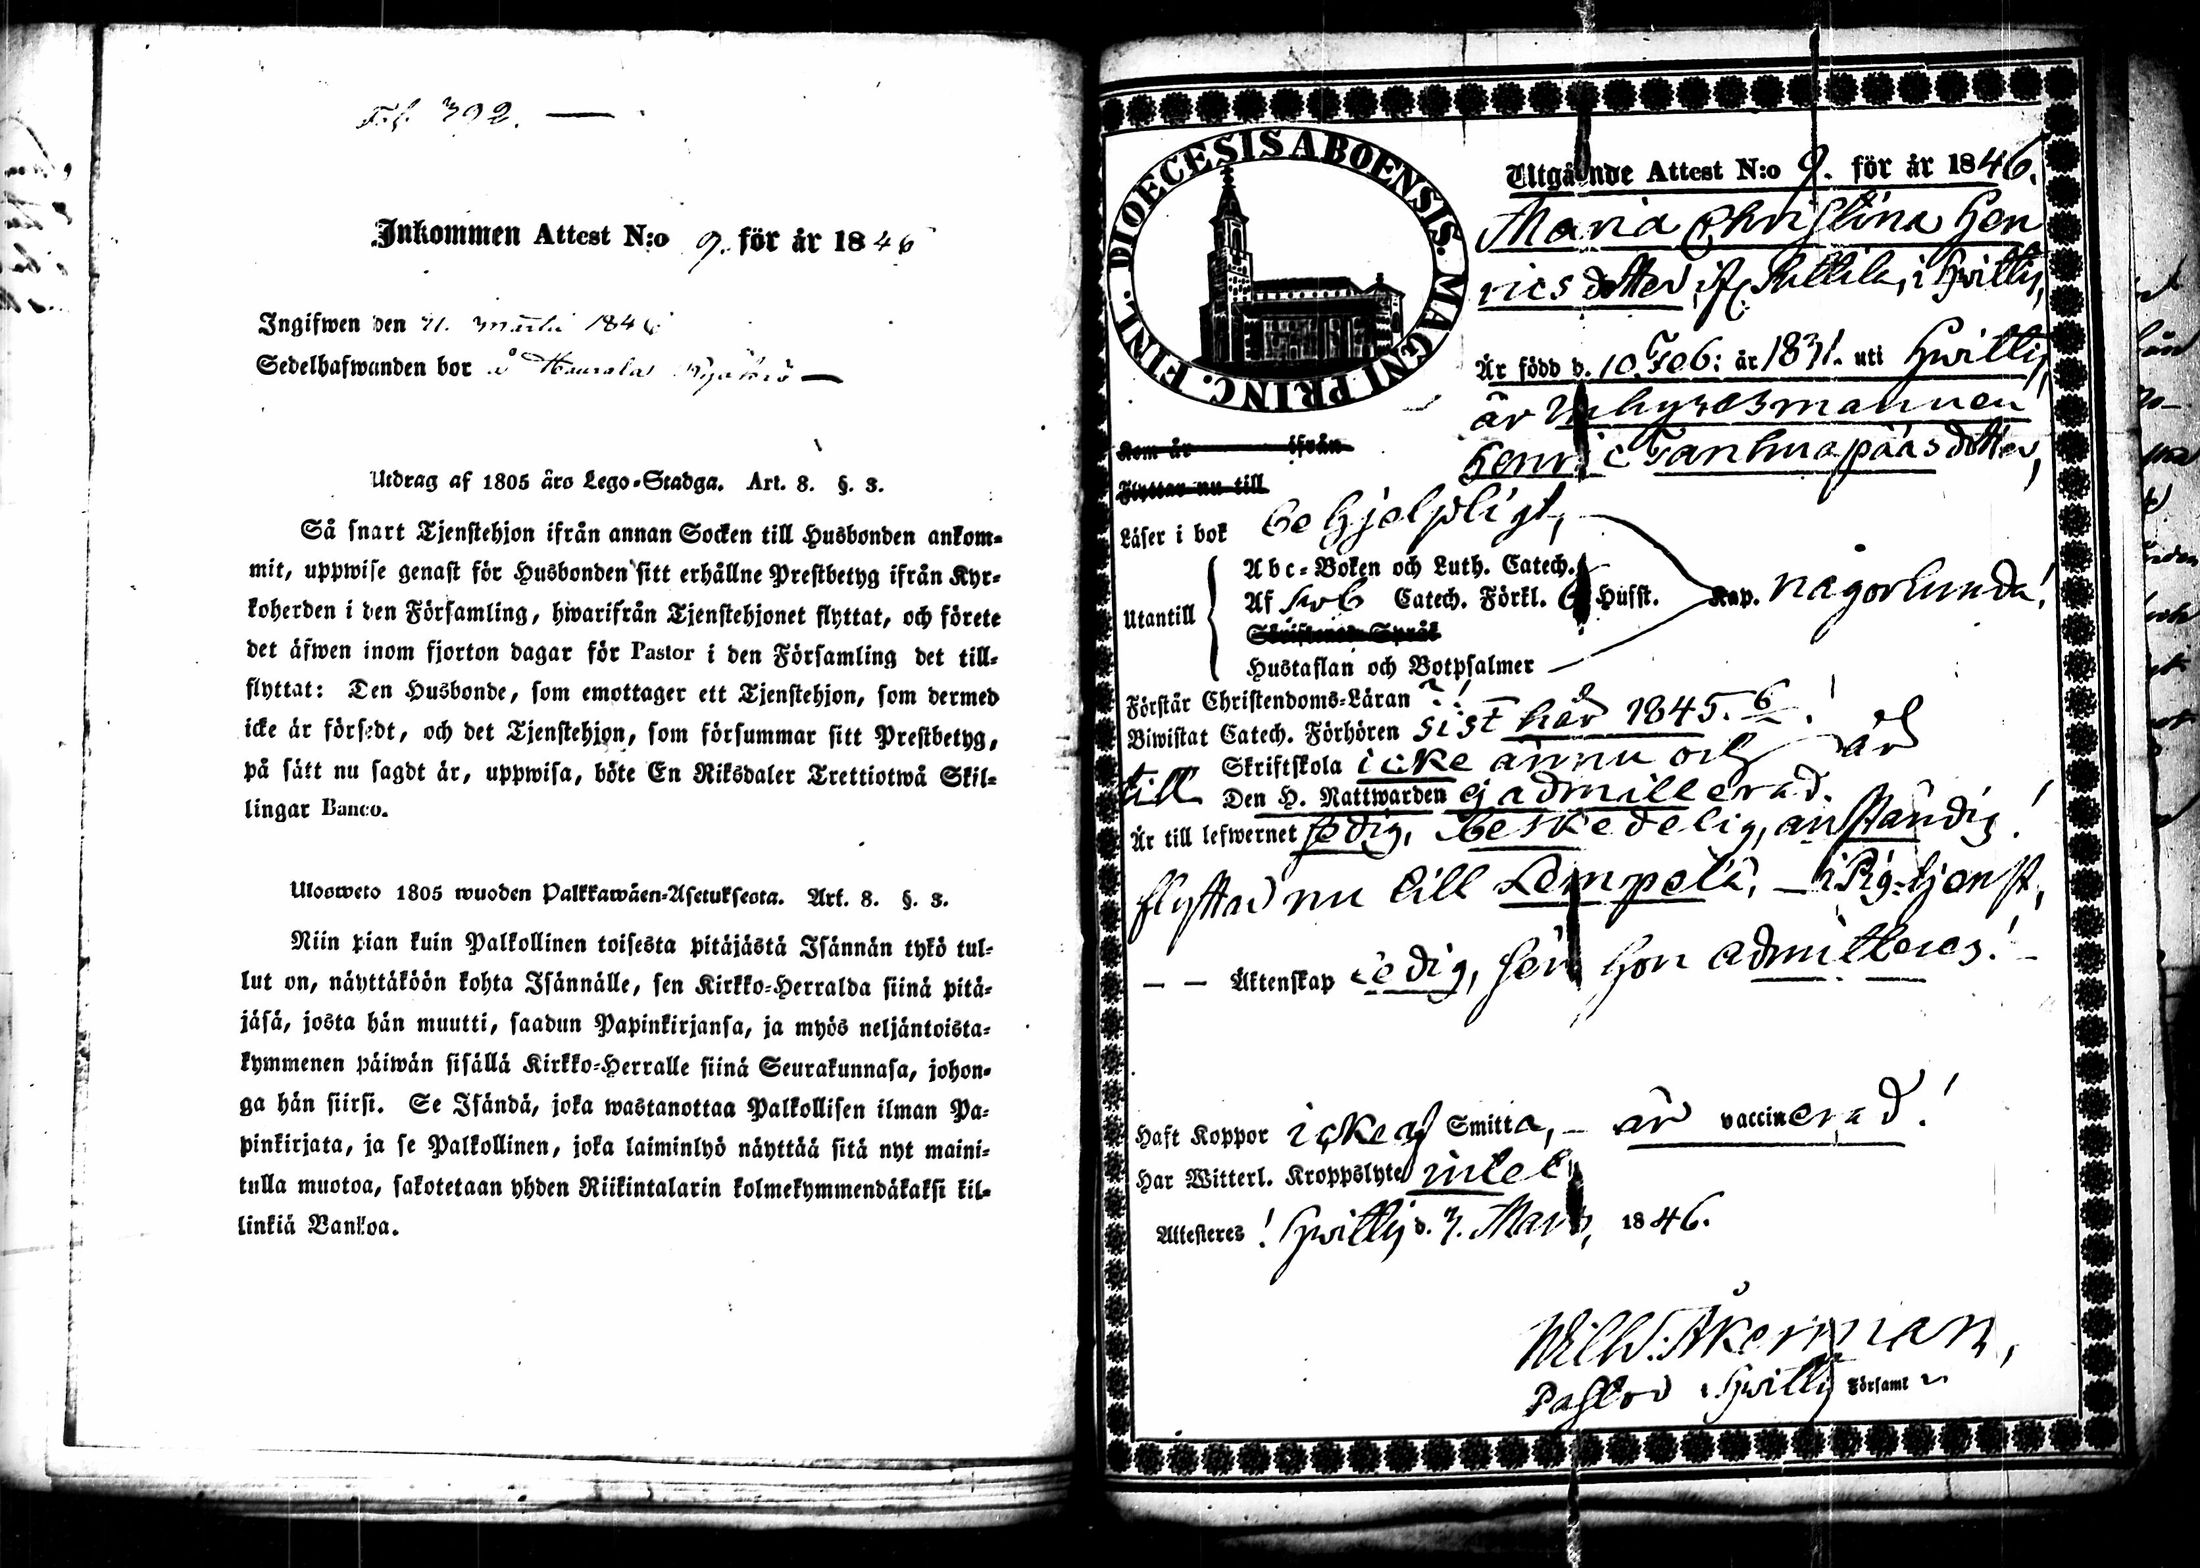 392. —
Inkommen Attest N:o 9. för år 1846
Ingifwen den 21. Martii 1846
Sedelhafwanden bor å
Utdrag af 1805 års Lego-Stadga. Art. 8. §. 3.
Så snart Tjenstehjon ifrån annan Socken till Husbonden ankom-
mit, uppwise genast för Husbonden sitt erhållne Prestbetyg ifrån Kyr-
koherden i den Församling, hwarifrån Tjenstehjonet flyttat, och förete
det äfwen inom fjorton dagar för Pastor i den Församling det till-
flyttat: Den Husbonde, som emottager ett Tjenstehjon, som dermed
icke är försedt, och det Tjenstehjon, som försummar sitt Prestbetyg,
på sätt nu sagdt är, uppwisa, böte En Riksdaler Trettiotwå Skil-
lingar Banco.
Ulosweto 1805 wuoden Palkkawäen-Asetuksesta. Art. 8. §. 3.
Niin pian kuin Palkollinen toisesta pitäjästä Isännän tykö tul-
lut on, näyttäköön kohta Isännälle, sen Kirkko-Herralda siinä pitä-
jäsä, josta hän muutti, saadun Papinkirjansa, ja myös neljäntoista-
kymmenen päiwän sisällä Kirkko-Herralle siinä Seurakunnasa, johon-
ga hän siirsi. Se Isändä, joka wastanottaa Palkollisen ilman Pa-
pinkirjata, ja se Palkollinen, joka laiminlyö näyttää sitä nyt maini-
tulla muotoa, sakotetaan yhden Riikintalarin kolmekymmendäkaksi kil-
linkiä Bankoa.
DIOECESIS ABOENSIS. MAGNI PRINC. FINL.
Utgående Attest N:o 9. för år 1846.
Maria Christina Hen
ricsdotter, if. i Hwittis,
Är född d. 10. Feb: år 1831. uti Hwittis,
är Inhysesmannen
Henric Tanhuapääs dotter,
Kom år ifrån
Flyttar nu till
Läser i bok behjelpligt,
Utantill
Abc-Boken och Luth. Catech.
Af Catech. Förkl. 6 Husst. Kap. någorlunda!
Skriftenes Språk
Hustaflan och Botpsalmer
Förstår Christendoms-Läran ?!
Biwistat Catech. Förhören sist här 1845. 6/ !
Skriftskola icke ännu och är
till Den H. Nattwarden ej admitterad.
Är till lefwernet sedig, beskedelig, anständig!
flyttar nu till Lempelä, – i Pig-tjenst,
– – Äktenskap ledig, sen hon admitteras! –
Haft Koppor icke af Smitta, – är vaccinerad!
Har Witterl. Kroppslyte intet,
Attesteres! Hwittis d. 3. Mars, 1846.
Wilh: Åkerman,
Pastor i Hwittis Församl